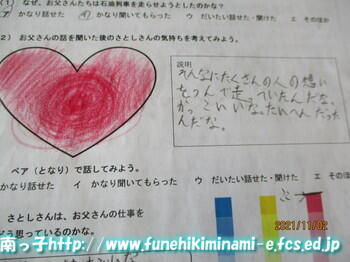 (1) なぜ、お父さんたちは石油列車を走らせようとしたのかな?
ア かなり話せた イ かなり聞いてもらった ウ だいたい話せた・聞けた エ そのほか
2) お父さんの話を聞いた後のさとしさんの気持ちを考えてみよう。
説明
そんなにたくさんの人の想い
をつんで走っていたんだな。
かっこいいな。たいへんだった
んだな。
ペア(となり)で話してみよう。
かなり話せた イ かなり聞いてもらった ウ だいたい話せた・聞けた エ
さとしさんは、お父さんの仕事を
どう思っているのかな。
2021/11/02
南っ子http://www.funehikiminami-e.fcs.ed.jp